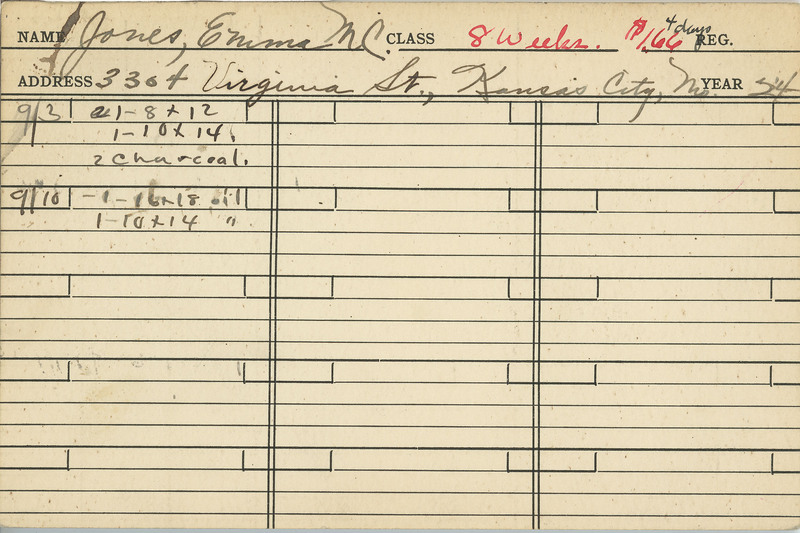 NAME Jones, Emma Mc. CLASS 8 Weeks. $1.66 4 days REG.
ADDRESS 3304 Virginia St., Kansas City, Mo. YEAR 24
9/3 1-8x12
1-10x14.
2 charcoal.
9/10 -1-16x18 oil
1-10x14 "